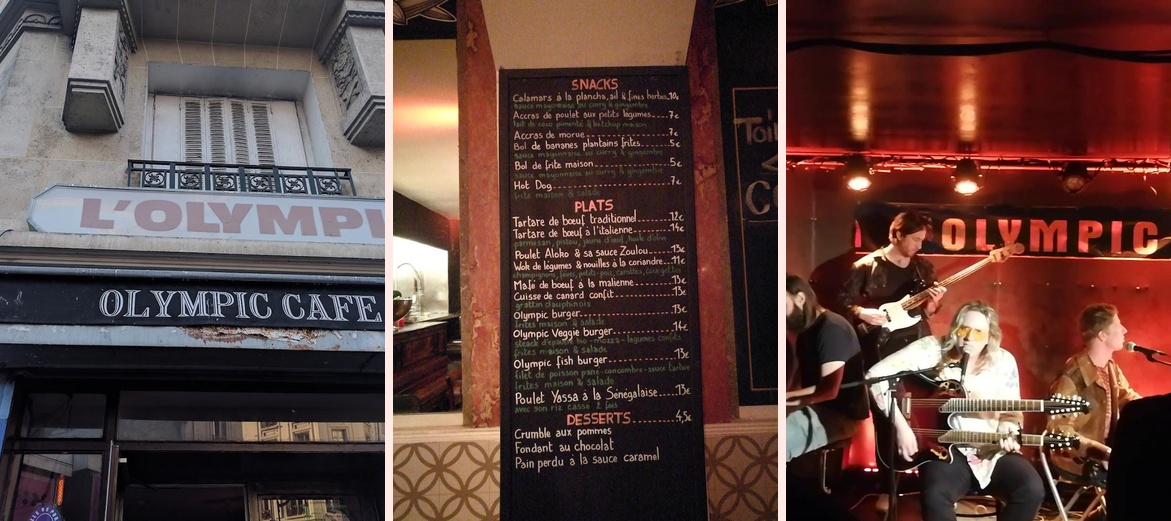 L'OLYMPI
OLYMPIC CAFE
SNACKS
Calamars à la plancha, ail & fines herbes 10€
sauce mayonnaise au curry & gingembre
Accras de poulet aux petits légumes 7€
lait de coco pimenté & ketchup maison
Accras de morue 7€
Bol de bananes plantains frites 5€
sauce mayonnaise au curry & gingembre
Bol de frite maison 5€
sauce mayonnaise au curry & gingembre
Hot Dog 7€
frite maison & salade
PLATS
Tartare de bœuf traditionnel 12€
Tartare de bœuf à l'italienne 14€
parmesan, pistou, jaune d'œuf, huile d'olive
Poulet Aloko & sa sauce Zoulou 13€
Wok de légumes & nouilles à la coriandre 11€
champignons, fèves, petits-pois, carottes, courgettes
Mafé de bœuf à la malienne 13€
Cuisse de canard confit 13€
gratin dauphinois
Olympic burger 13€
frites maison & salade
Olympic Veggie burger 14€
steack d'épautre bio - mozza - légumes confits
frites maison & salade
Olympic fish burger 13€
filet de poisson pané - concombre - sauce tartare
frites maison & salade
Poulet Yassa à la Sénégalaise 13€
avec son riz cassé 2 fois
DESSERTS 4,5€
Crumble aux pommes
Fondant au chocolat
Pain perdu à la sauce caramel
OLYMPIC